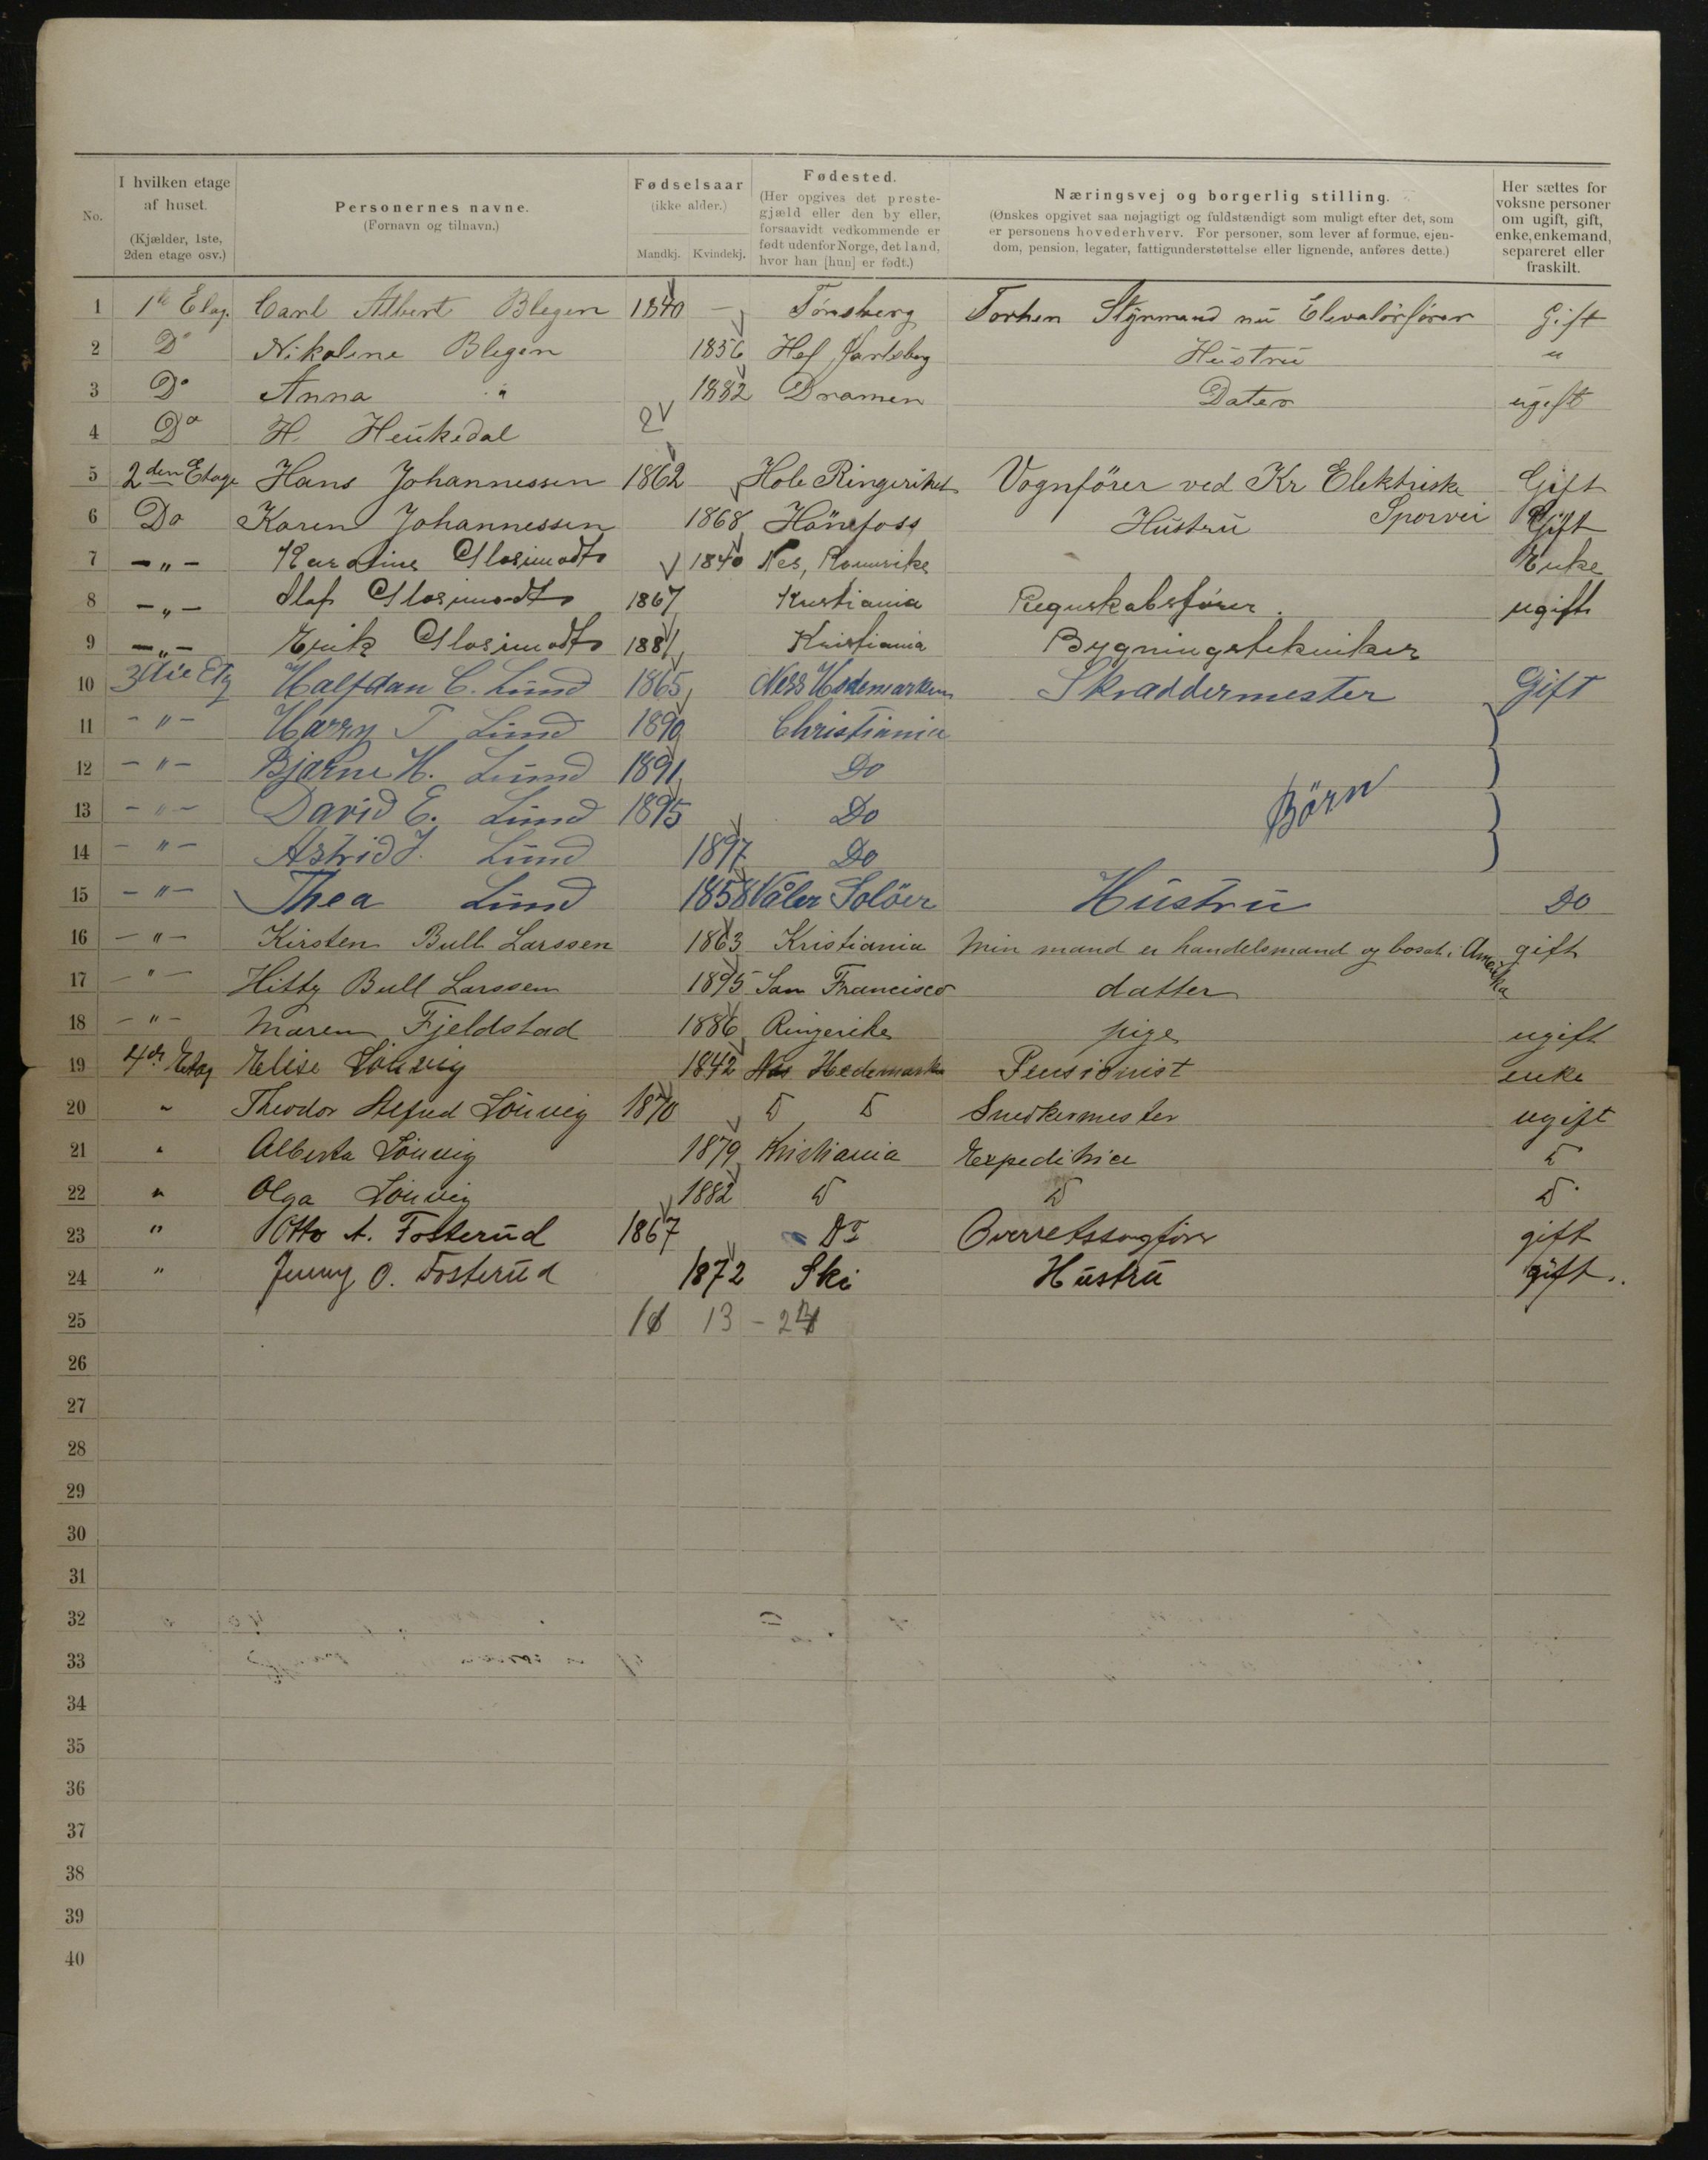 No.
I hvilken etage af huset. (Kjælder, 1ste, 2den etage osv.)
Personernes navne. (Fornavn og tilnavn.)
Fødselsaar (ikke alder.) Mandkj. Kvindekj.
Fødested. (Her opgives det prestegjæld eller den by eller, forsaavidt vedkommende er født udenfor Norge, det land, hvor han [hun] er født.)
Næringsvej og borgerlig stilling. (Ønskes opgivet saa nøjagtigt og fuldstændigt som muligt efter det, som er personens hovederhverv. For personer, som lever af formue, ejendom, pension, legater, fattigunderstøttelse eller lignende, anføres dette.)
Her sættes for voksne personer om ugift, gift, enke, enkemand, separeret eller fraskilt.
1 1ste Etag. Carl Albert Blegen 1840 — Tønsberg Styrmand nu Elevatørfører Gift
2 Do Nikoline Blegen 1856 Hof Jarlsberg Hustru "
3 Do Anna " 1882 Dramen Dater ugift
4 Do H. Heukedal 2
5 2den Etage Hans Johannessen 1862 Hole Ringeriket Vognfører ved Kr Elektriske Sporvei Gift
6 Do Karen Johannessen 1868 Hönefoss Hustru Gift
7 -"- Karoline 1840 Nes, Romerike Enke
8 -"- Olaf 1867 Kristiania Regnskabsfører. ugift
9 -"- Erik 1881 Kristiania Bygningstekniker
10 3die Etg Halfdan C. Lund 1865 Ness Hedemarken Skraddermester Gift
11 -"- Harry T Lund 1890 Christiania
12 -"- Bjarne H. Lund 1891 Do
Börn
13 -"- David E. Lund 1895 Do
14 -"- Astrid J. Lund 1897 Do
15 -"- Thea Lund 1858 Våler Solöer Hustru Do
16 -"- Kirsten Bull Larssen 1863 Kristiania Min mand er handelsmand og bosat i Amerika gift
17 -"- Hitty Bull Larssen 1895 San Francisco datter
18 -"- Maren Fjeldstad 1886 Ringerike pige ugift
19 4de Etag Elise Lönvig 1842 Nes Hedemarken Pensionist enke
20 " Theodor Alfred Lönvig 1870 D D Snedkermester ugift
21 " Alberta Lönvig 1879 Kristiania Expeditrice D
22 " Olga Lönvig 1882 D D D
23 " Otto A. Fosterud 1867 Do Overretssagfører gift
24 " Jenny O. Fosterud 1872 Ski Hustru gift.
25 13 -
26
27
28
29
30
31
32
33
34
35
36
37
38
39
40